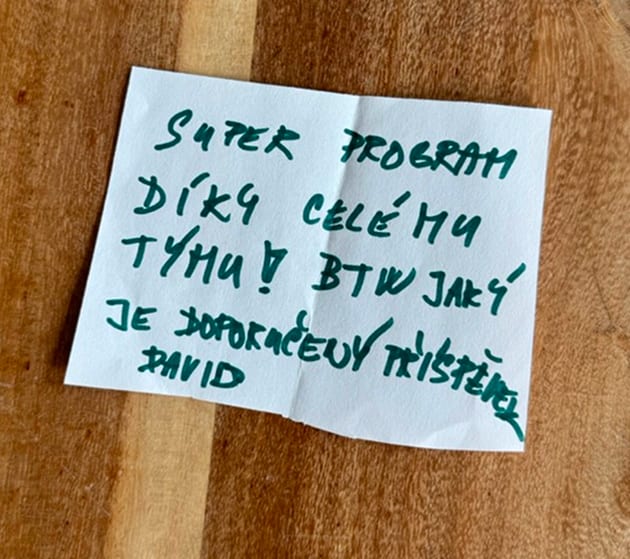 SUPER PROGRAM
DÍKY CELÉMU
TÝMU! BTW JAKÝ
JE DOPORUČENÝ PŘÍSPĚVEK
DAVID